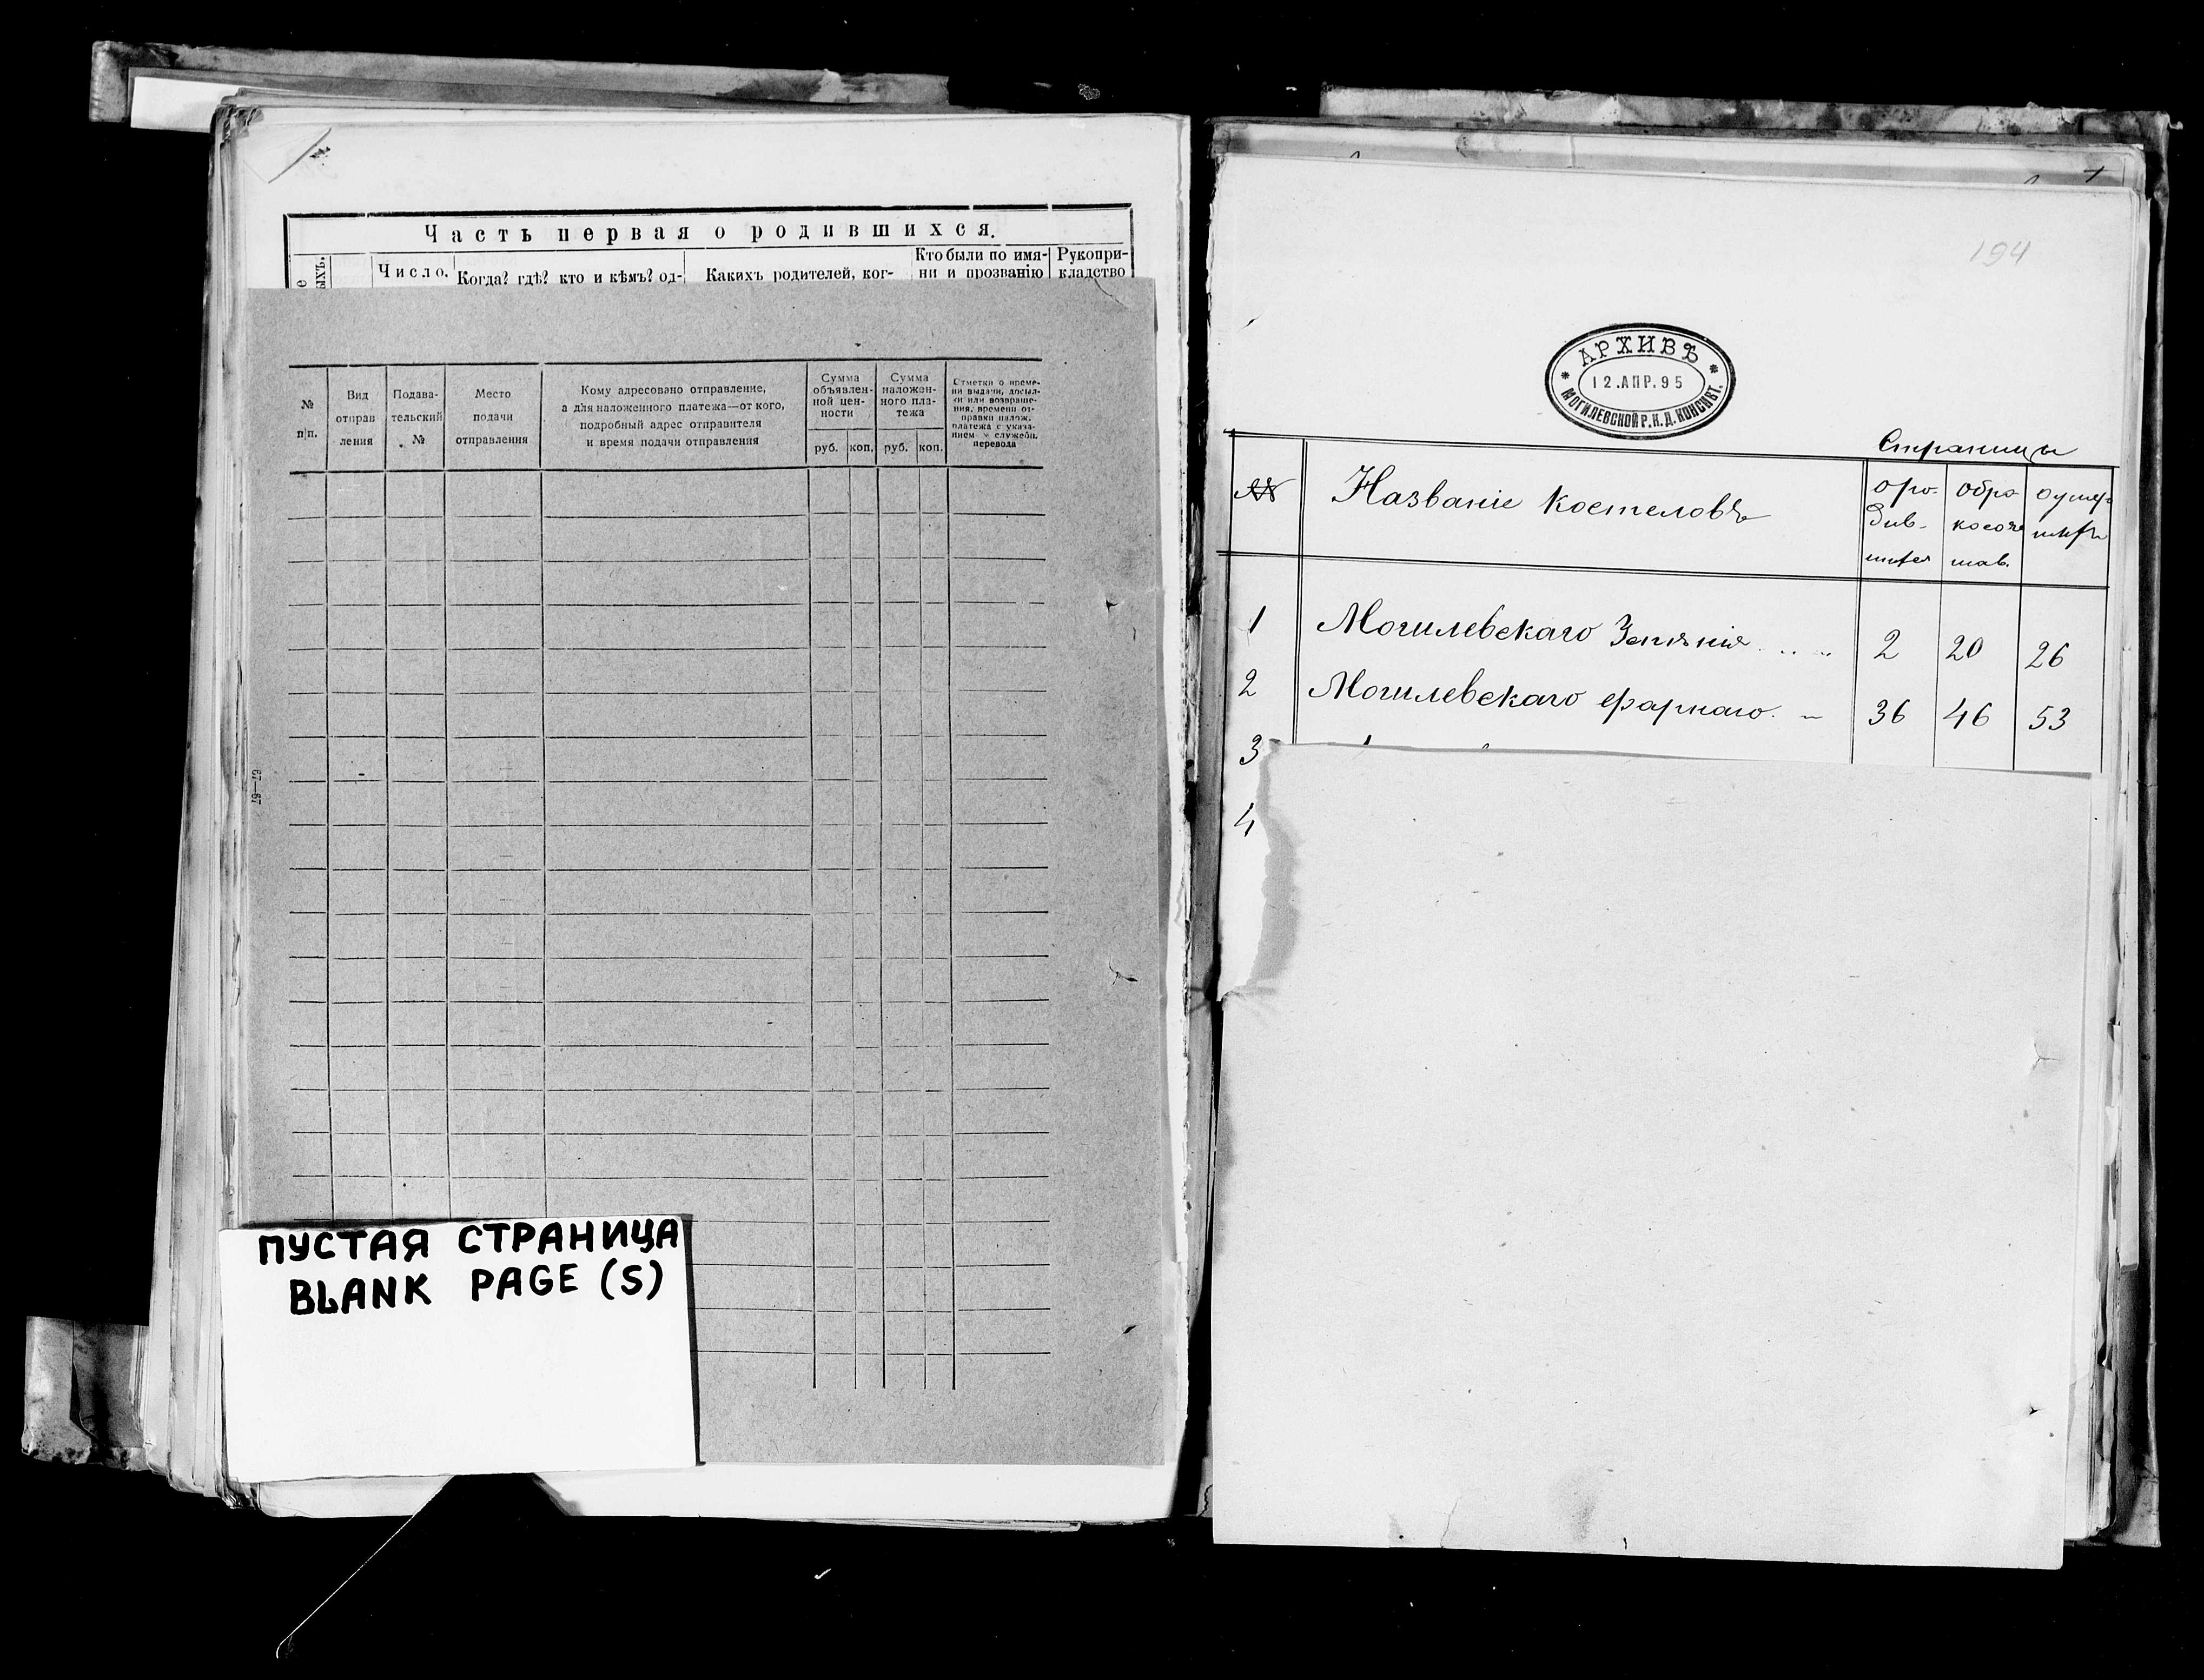 Часть первая о родившихся.
Число.
Когда? гдѣ? кто и кѣмъ? од-
Какихъ родителей, ког-
Кто были по имя-
ни и прозванію
Рукопри-
кладство
№
п/п.
Вид
отправ
ления
Подава-
тельский
№
Место
подачи
отправления
Кому адресовано отправление,
а для наложенного платежа—от кого,
подробный адрес отправителя
и время подачи отправления
Сумма
объявлен-
ной цен-
ности
руб. коп.
Сумма
наложен-
ного пла-
тежа
руб. коп.
Отметки о време-
ни выдачи, досыл-
ки или возвраще-
ния, времени от-
правки налож.
платежа с указа-
нием № служебн.
перевода
67—67
ПУСТАЯ СТРАНИЦА
BLANK PAGE (S)
194
АРХИВЪ
12.АПР.95
МОГИЛЕВСКОЙ Р.К.Д.КОНСИСТ.
Страницы
№№
Названіе костеловъ
о ро-
див-
шихся
о бра-
косоче
тав.
о умер-
шихъ
1 Могилевскаго 2 20 26
2 Могилевскаго фарнаго 36 46 53
3
4